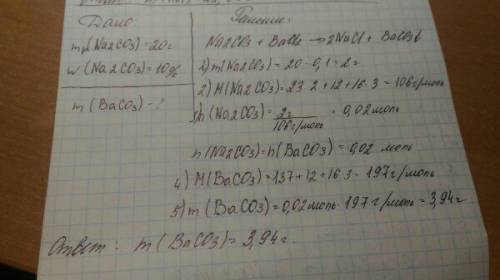 Дано:
mр(Na2CO3)=20г
w(Na2CO3)=10%
m(BaCO3)-?
Решение:
Na2CO3 + BaCl2 → 2NaCl + BaCO3↓
1) m(Na2CO3)=20·0,1=2г
2) M(Na2CO3)=23·2+12+16·3=106г/моль
n(Na2CO3)=2г/106г/моль=0,02моль
n(Na2CO3)=n(BaCO3)=0,02 моль
4) M(BaCO3)=137+12+16·3=197г/моль
5) m(BaCO3)=0,02моль·197г/моль=3,94г
Ответ: m(BaCO3)=3,94г.